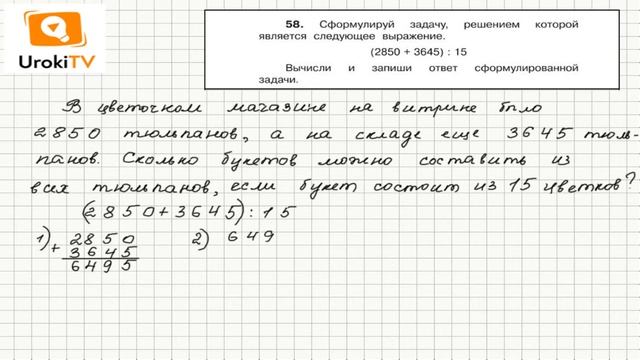 UrokiTV
58. Сформулируй задачу, решением которой
является следующее выражение.
(2850 + 3645) : 15
Вычисли и запиши ответ сформулированной
задачи.
В цветочном магазине на витрине было
2850 тюльпанов, а на складе еще 3645 тюль-
панов. Сколько букетов можно составить из
всех тюльпанов, если букет состоит из 15 цветков?
(2850+3645):15
1) + 2850 2) 649
3645
6495